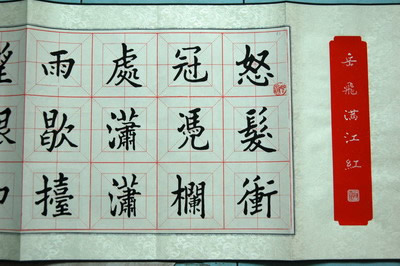 岳飛滿江紅
怒髮衝
冠凴欄
處瀟瀟
雨歇擡